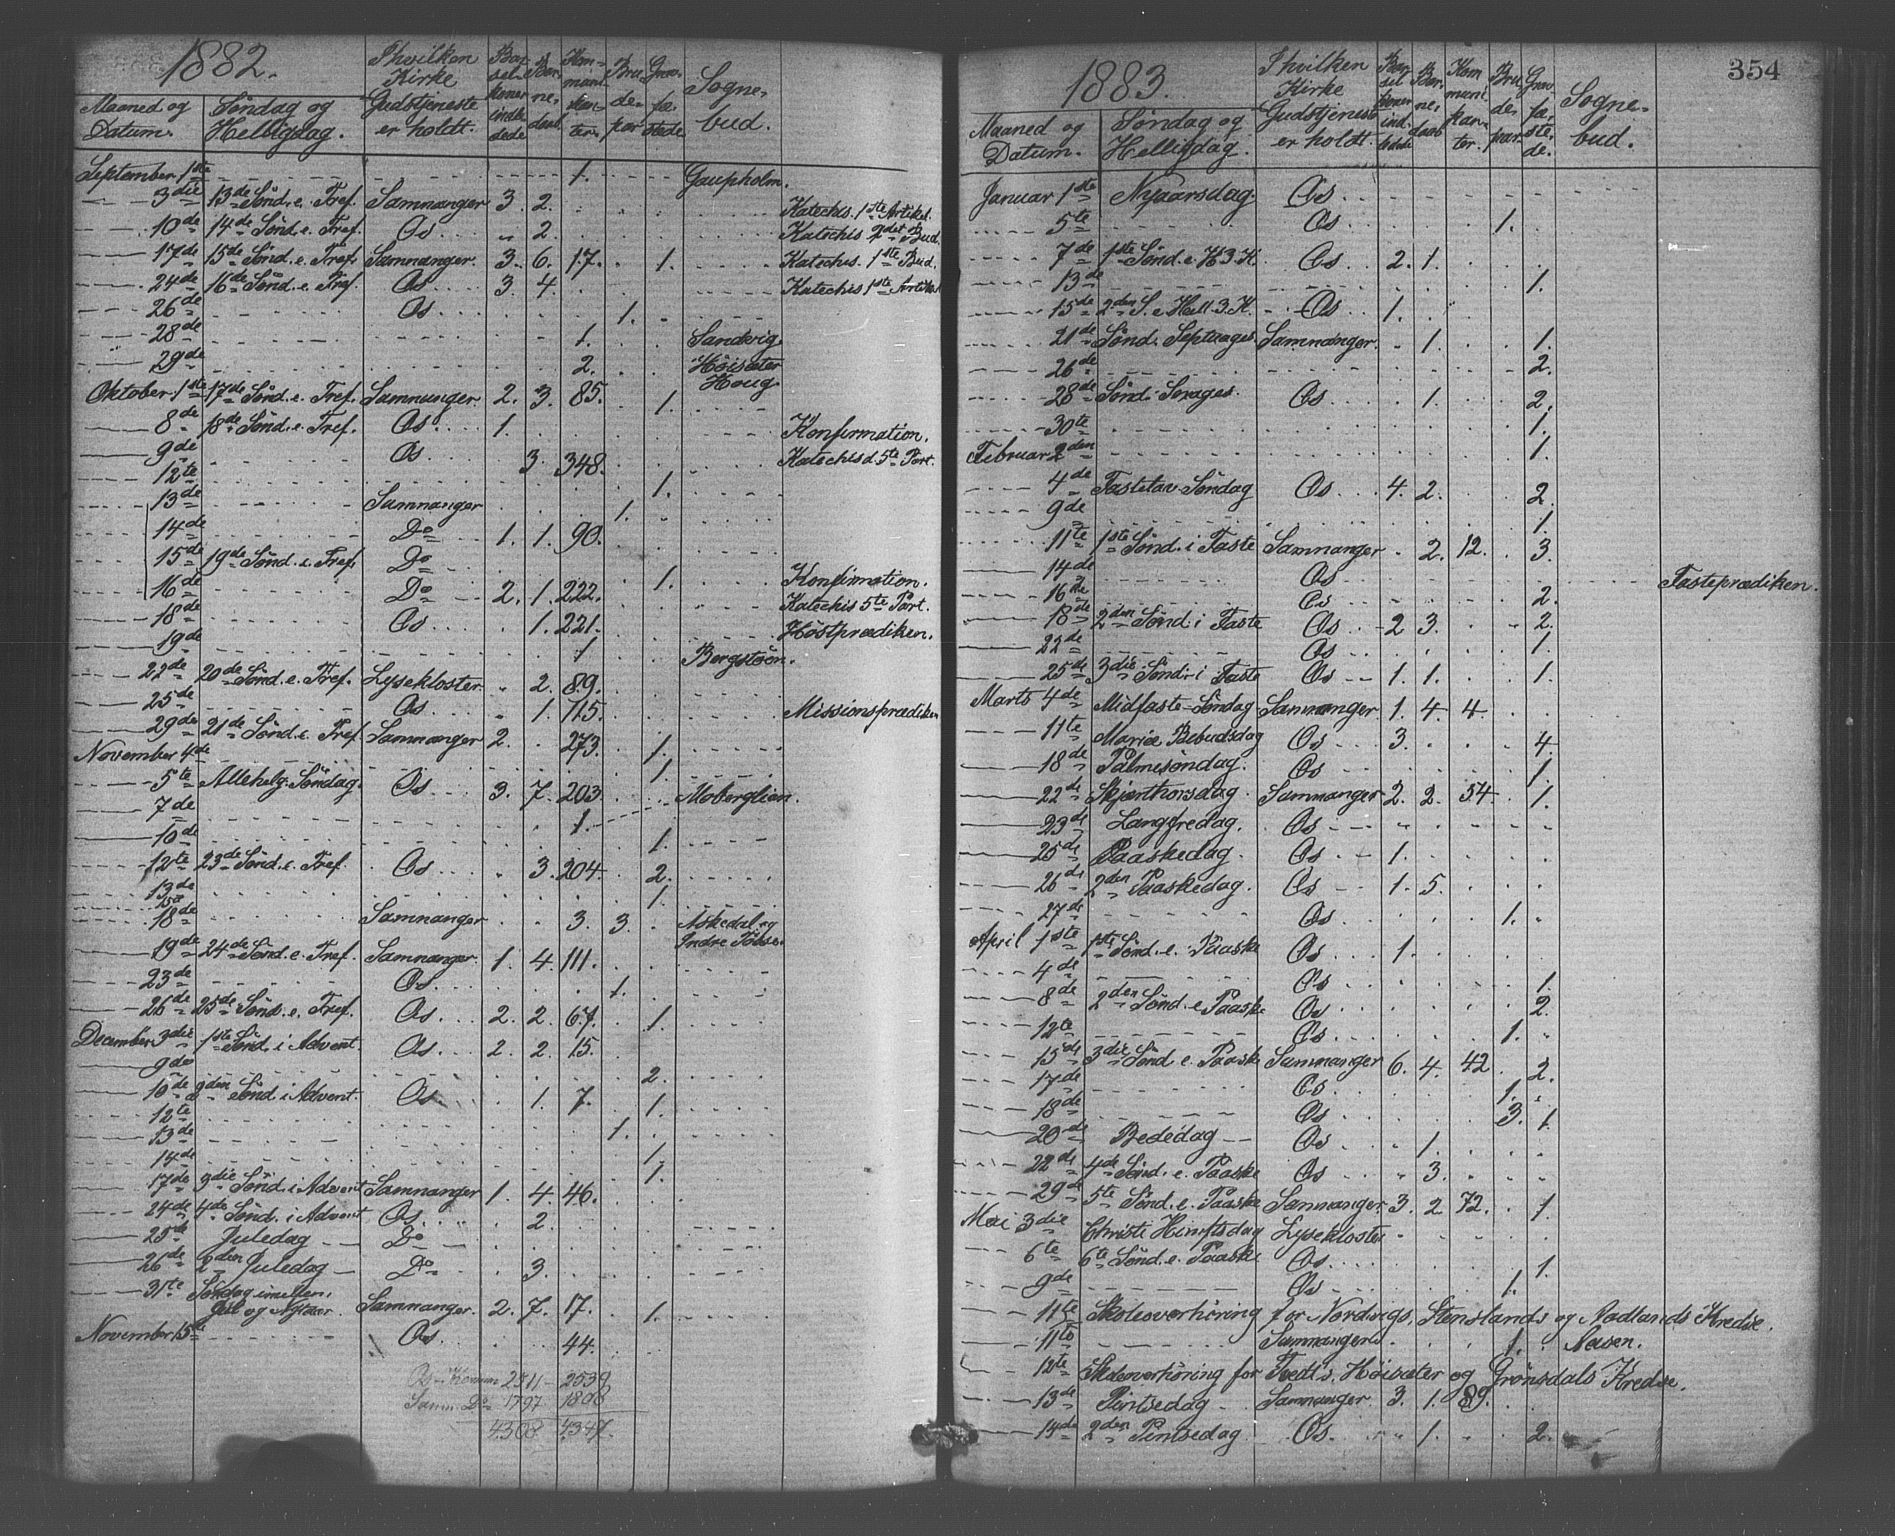 1882.
Maaned og Datum. | Søndag og Helligdag. | I hvilken Kirke Gudstjeneste er holdt. | Barselkoner indledede | Barnedaab. | Kommunikanter. | Brudepar | Gravfæstede | Sognebud.
September 1ste 1. Gaupholm.
3die 13de Sønd. e. Tref. Samnanger 3. 2. Katechis. 1ste Artikel.
10de 14de Sønd. e. Tref. Os „ 2. Katechis 2det Bud.
17de 15de Sønd. e. Tref. Samnanger. 3. 6. 17. 1. Katechis. 1ste Bud.
24de 16de Sønd. e. Tref. Os 3. 4. Katechis 1ste Artikel
26de Os 1.
28de 1. Sandvig.
29de 2. Høisæter Houg.
Oktober 1ste 17de Sønd. e. Tref. Samnanger. 2. 3. 85. 1.
8de 18de Sønd. e. Tref. Os. 1. Konfirmation.
9de Os 3. 348. Katechis d. 5te Part.
12te 1.
13de Samnanger 1.
14de Do 1. 1. 90.
15de 19de Sønd. e. Tref. Do 1. Konfirmation.
16de Do 2. 1. 222. Katechis 5te Part.
18de Os 1. 221. Høstprædiken.
19de 1
22de 20de Sønd. e. Tref. Lysekloster „ 2. 89.
25de Os „ 1. 115. Missionsprædiken
29de 21de Sønd. e. Tref. Samnanger 2. 273. 1.
November 4de 1.
5te Allehelg. Søndag. Os 3. 7. 203 Moberglien.
7de 1.
10de 1.
12te 23de Sønd. e. Tref. Os „ 3. 204. 2.
13de 1.
18de Samnanger 3. 3. Askedal og Indre
19de 24de Sønd. e. Tref. Samnanger. 1. 4. 111.
23de Os. 1.
26de 25de Sønd. e. Tref. Os. 2. 2. 67. 1.
December 3die 1ste Sønd. i Advent. Os. 2. 2. 15.
9de 2.
10de 2den Sønd. i Advent. Os. 1. 7. 1.
12te
13de 1.
14de 1.
17de 3die Sønd. i Advent Samnanger 1. 4. 46.
24de 4de Sønd. i Advent Os. 2.
25de Juledag Do
26de 2den Juledag Do 3.
31te Søndag imellem Jul og Nytaar. Samnanger. 2. 7. 17. 1.
November 15de Os. 44.
Os Komm 2511 - 2539
Samn. Do 1797 1808
4308 4347.
354
1883.
Maaned og Datum. | Søndag og Helligdag. | I hvilken Kirke Gudstjeneste er holdt. | Barselkoner indledede | Barnedaab | Kommunikanter. | Brudepar. | Gravfæstede. | Sognebud.
Januar 1ste Nyaarsdag Os
5te Os 1.
7de 1ste Sønd. e. H. 3. K. Os 2. 1.
13de 1.
15de 2den S. e. Hell. 3. K. Os 1.
21de Sønd. Septuages. Samnanger. 1. 1.
26de 2.
28de Sønd. Sexages. Os 1. 2.
30te 1.
Februar 2den 1.
4de Fastelav. Søndag Os 4. 2. 2.
9de 1.
11te 1ste Sønd. i Faste Samnanger 2. 12. 3.
14de Os Fasteprædiken.
16de Os 2.
18de 2den Sønd. i Faste Os 2 3. 2.
22de Os 1.
25de 3die Sønd. i Faste Os 1. 1. 1.
Marts 4de Midfaste-Søndag Samnanger 1. 4. 4.
11te Mariæ Bebudsdag Os 3. 4.
18de Palmesøndag. Os 1.
22de Skjærthorsdag. Samnanger 2. 2. 54. 1.
23de Langfredag. Os
25de Paaskedag. Os 1.
26de 2den Paaskedag. Os 1. 5.
27de Os 1.
April 1ste 1ste Sønd. e. Paaske Os 1.
4de Os 1.
8de 2den Sønd. e. Paaske Os 2.
12te Os 1.
15de 3die Sønd. e. Paaske Samnanger 6. 4. 42 2.
17de Os 1.
18de Os 3. 1.
20de Bededag Os 1.
22de 4de Sønd. e. Paaske Os „ 3.
29de 5te Sønd. e. Paaske Samnanger 3. 2 72. 1.
Mai 3die Christi Himftsdag Lysekloster
6te 6te Sønd. e. Paaske Os 1.
9de Os 1.
11te Skoleoverhøring for Nordvigs, Stenslands og Aadlands Kredse.
11te Samnanger 1. Aasen.
12te Skoleoverhøring for Tvedts, Høisæter og Grønsdals Kredse.
13de Pintsedag Samnanger 3. 1. 89.
14de 2den Pintsedag Os 1. 2.